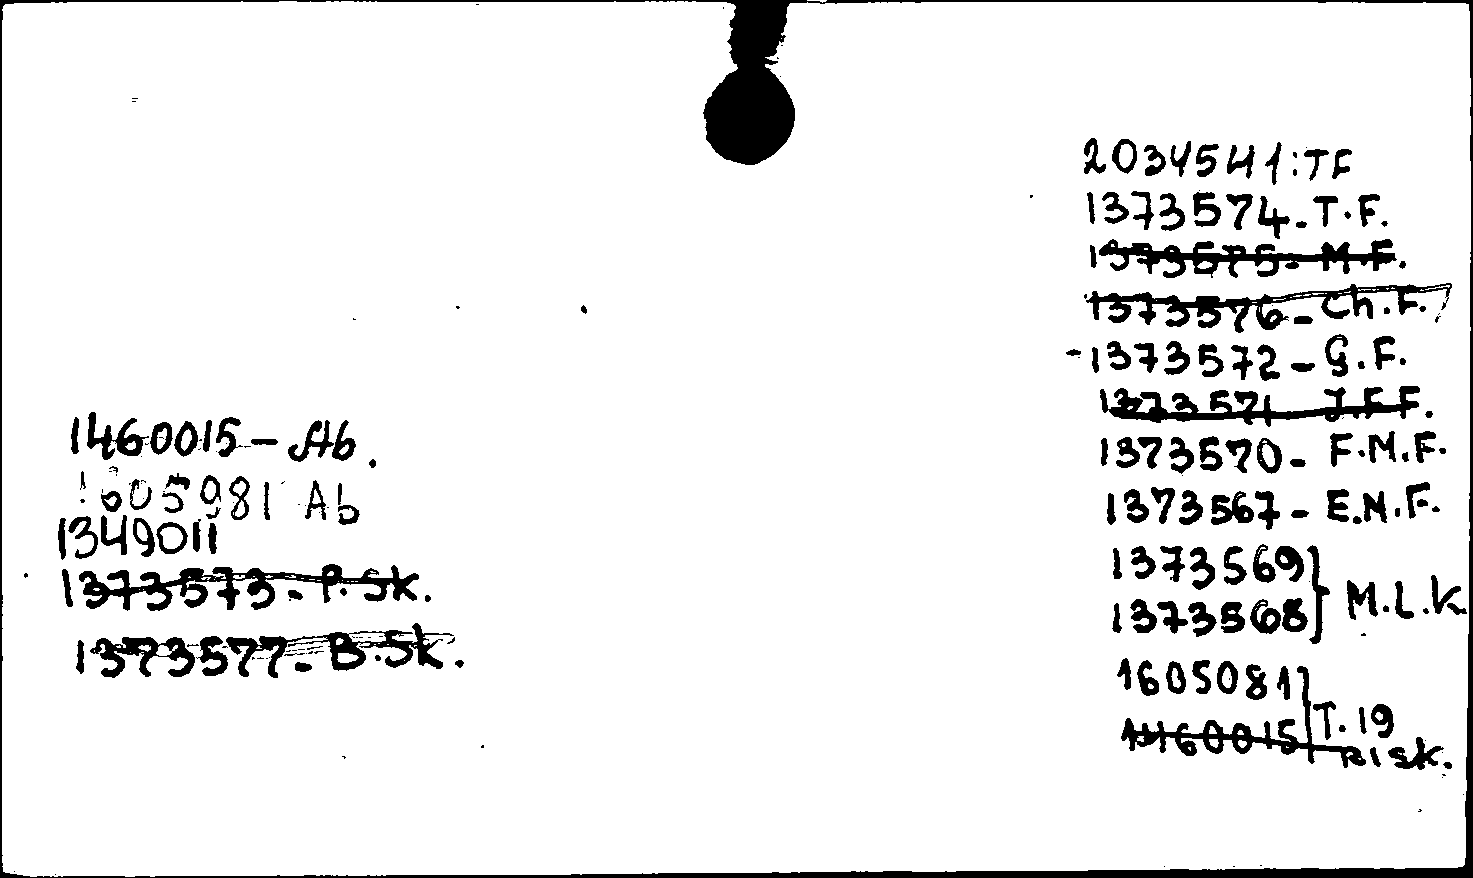 1460015 - Ab.
1605981 Ab
1349011
1373573 - P. Sk.
1373577 - B. Sk.
2034541: TF
1373574 - T.F.
1373575 - M.F.
1373576 - Ch.F.
-1373572 - G.F.
1373571 - J.F.F.
1373570 - F.M.F.
1373567 - E.N.F.
1373569 }
1373568 } M.L.K.
1605081
1460015 T. 19
Sk.